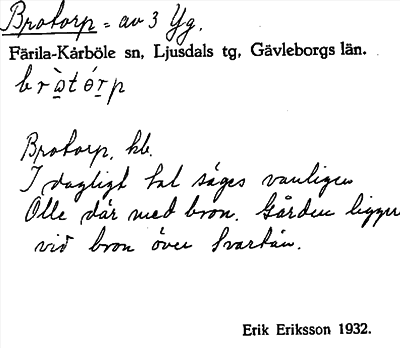 Brotorp = av 3 Yg.
Färila-Kårböle sn, Ljusdals tg, Gävleborgs län.
bròtórp
Brotorp, kb.
I dagligt tal säges vanligen
Olle där med bron. Gården ligger
vid bron över Svartån.
Erik Eriksson 1932.